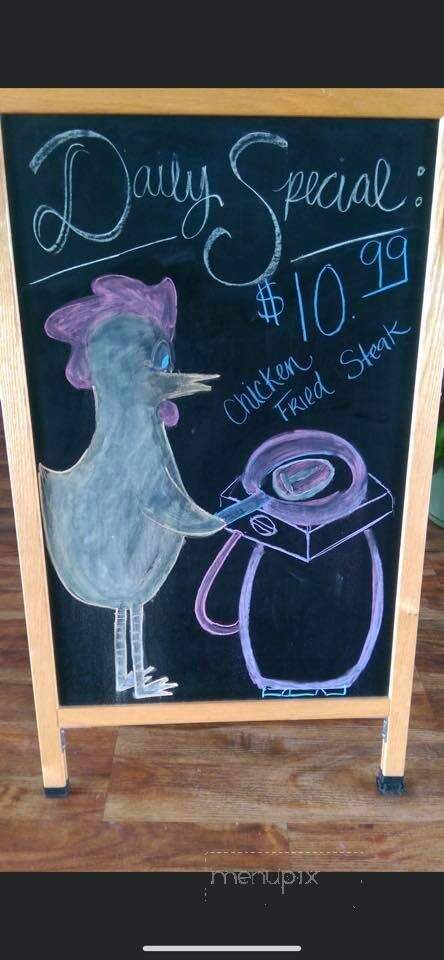 Daily Special:
$10.99
Chicken
Fried Steak
menupix